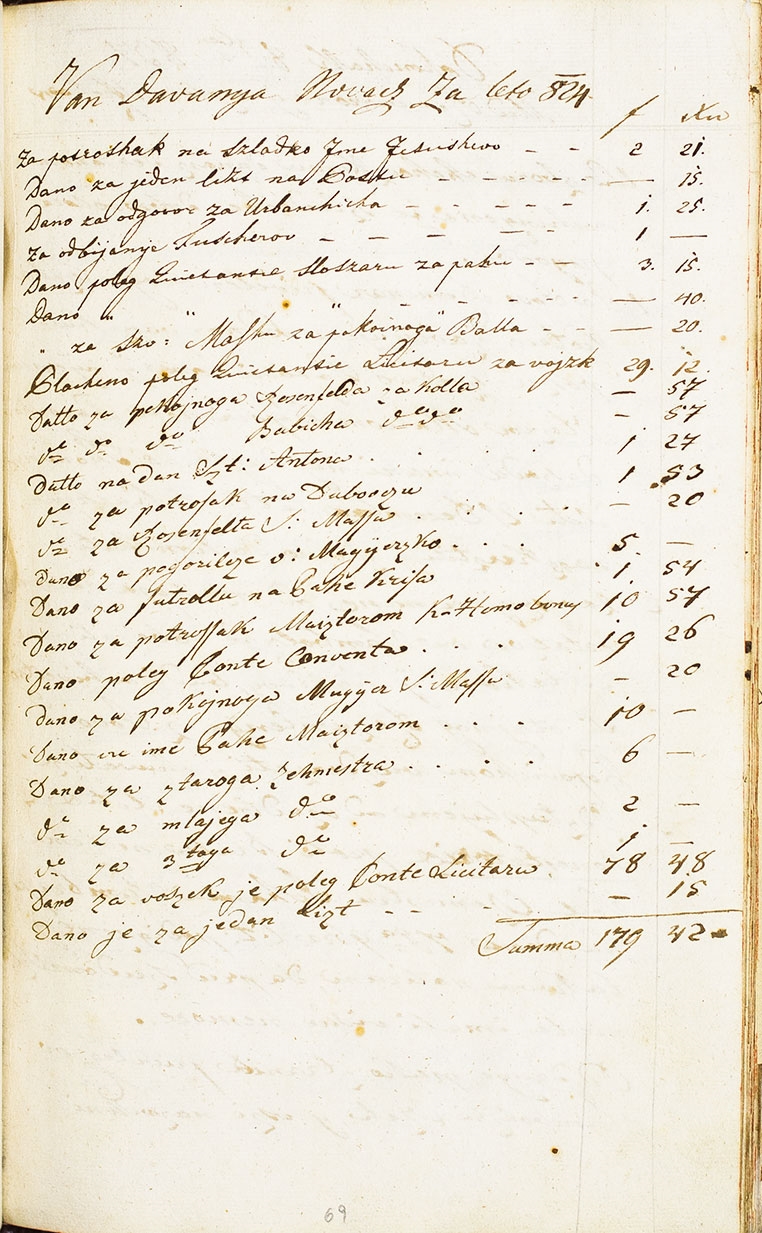 Van Davanya Novacz Za leto 824.
f xru
Za potroshak na szladko Jme Jesushevo - - 2 21.
Dano za jeden lizt na Postu - - - - - — 15.
Dano za odgovor za Urbanchicha - - - - - 1. 25.
Za odbijanje Tuscherov - - - - - 1 —
Dano poleg Quietansie Sloszaru za paku - - 3. 15.
Dano " " " - - - - — 40.
" za szv: Mashu za pokoinoga Balla - - — 20.
Placheno poleg Quietansie Licitaru za vojzk 29. 12.
Datto za pokojnoga Rosenfelda za Kolla — 57
do do do Babicha do do — 57
Datto na dan Szt: Antona . . . 1 27
do za potrosak na Dubovczu 1 53
do za Rosenfelta S: Massu . . . — 20
Dano za pogorilcze v: Magyerszko . . . 5 —
Dano za futrollu na Cahe Krisa 1 54
Dano za potrossak Maiztorom K Homobonu 10 57
Dano poleg Conte Conventa . . . 19 26
Dano za pokojnoga Mugyer S: Massu — 20
Dano vu ime Cahe Maiztorom . . . 10 —
Dano za ztaroga Zehmestra . . . 6 —
do za mlajega do 2 —
do za 3 toga do 1 —
Dano za voszek je poleg Conte Licitaru . 78 48
Dano je za jedan lizt - - - — 15
Summa 179 42
69